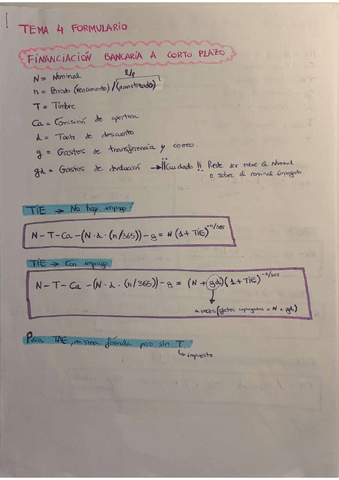 TEMA 4 FORMULARIO
FINANCIACIÓN BANCARIA A CORTO PLAZO
N = Nominal
n = Período (vencimiento) /
T = Timbre
Ca = Comisión de apertura
d = Tanto de descuento
g = Gastos de transferencia y correo.
gd = Gastos de devolución → ¡¡Cuidado!! Puede ser sobre el Nominal
o sobre el nominal impagado.
TIE → No hay impago
N - T - Ca - (N · d · (n/365)) - g = N (1 + TIE)^-n/365
TIE → Con impago
N - T - Ca - (N · d · (n/365)) - g = (N + gd) (1 + TIE)^-n/365
a veces (gastos impagados = N + gd)
Para TAE, misma fórmula pero sin T
↳ impuesto